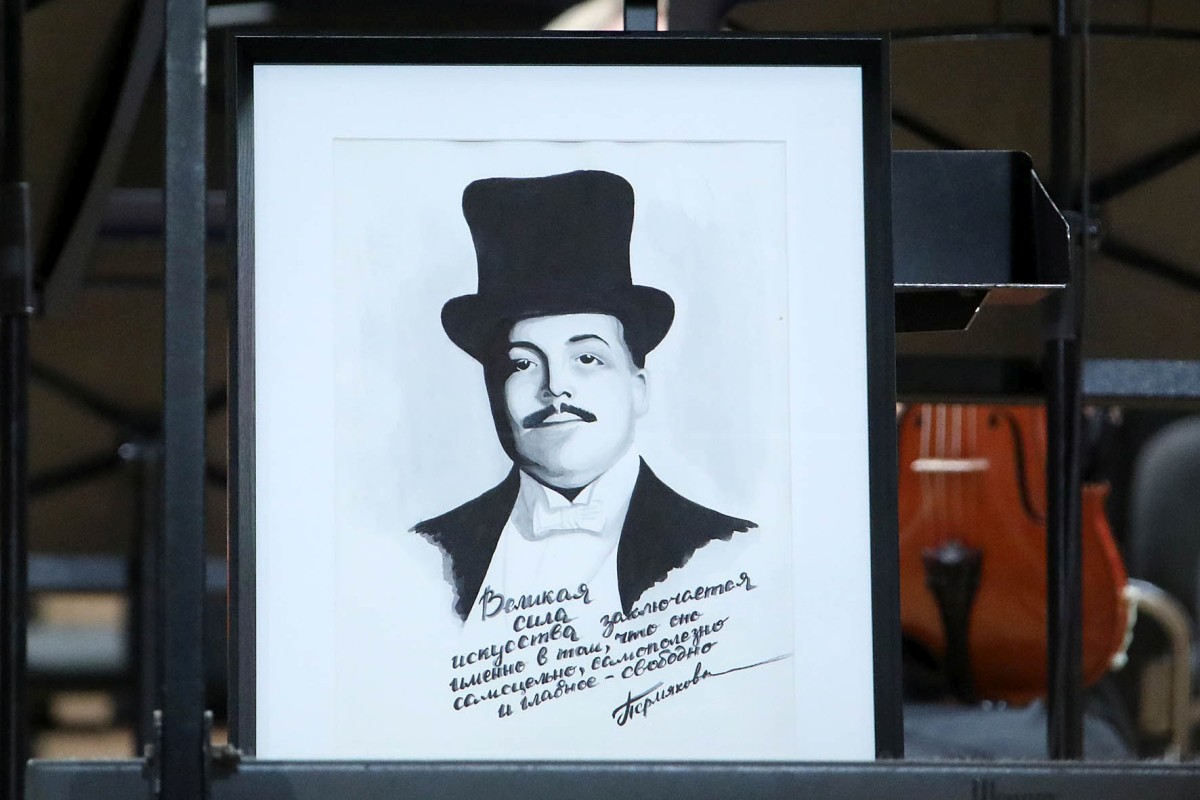 Великая
сила
искусства заключается
именно в том, что оно
самоцельно, самополезно
и главное - свободно
Пермякова